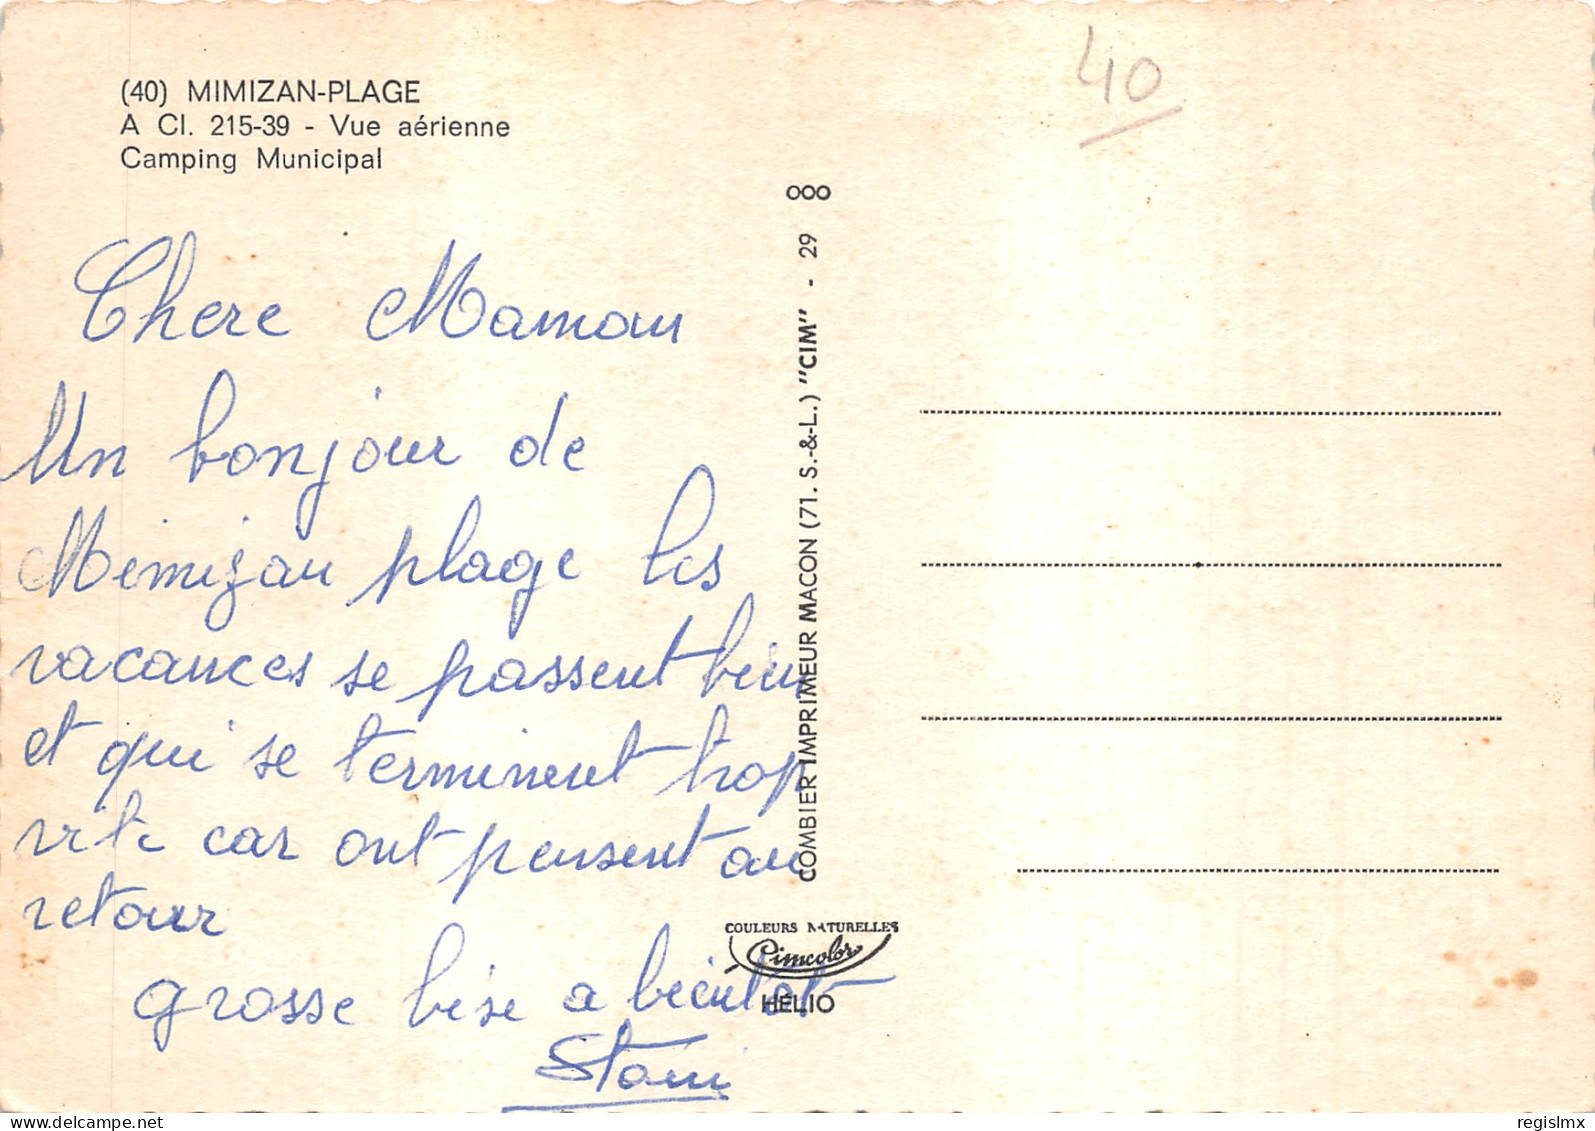 (40) MIMIZAN-PLAGE
A CI. 215-39 - Vue aérienne
Camping Municipal
40
Chere Maman
Un bonjour de
Mimizan plage les
vacances se passent bien
et qui se terminent trop
vite car ont pensent au
retour
grosse bise a bientot
Stani
COMBIER IMPRIMEUR MACON (71. S.-&-L.) "CIM" - 29
COULEURS NATURELLES
Cimcolor
HÉLIO
delcampe.net
regislmx